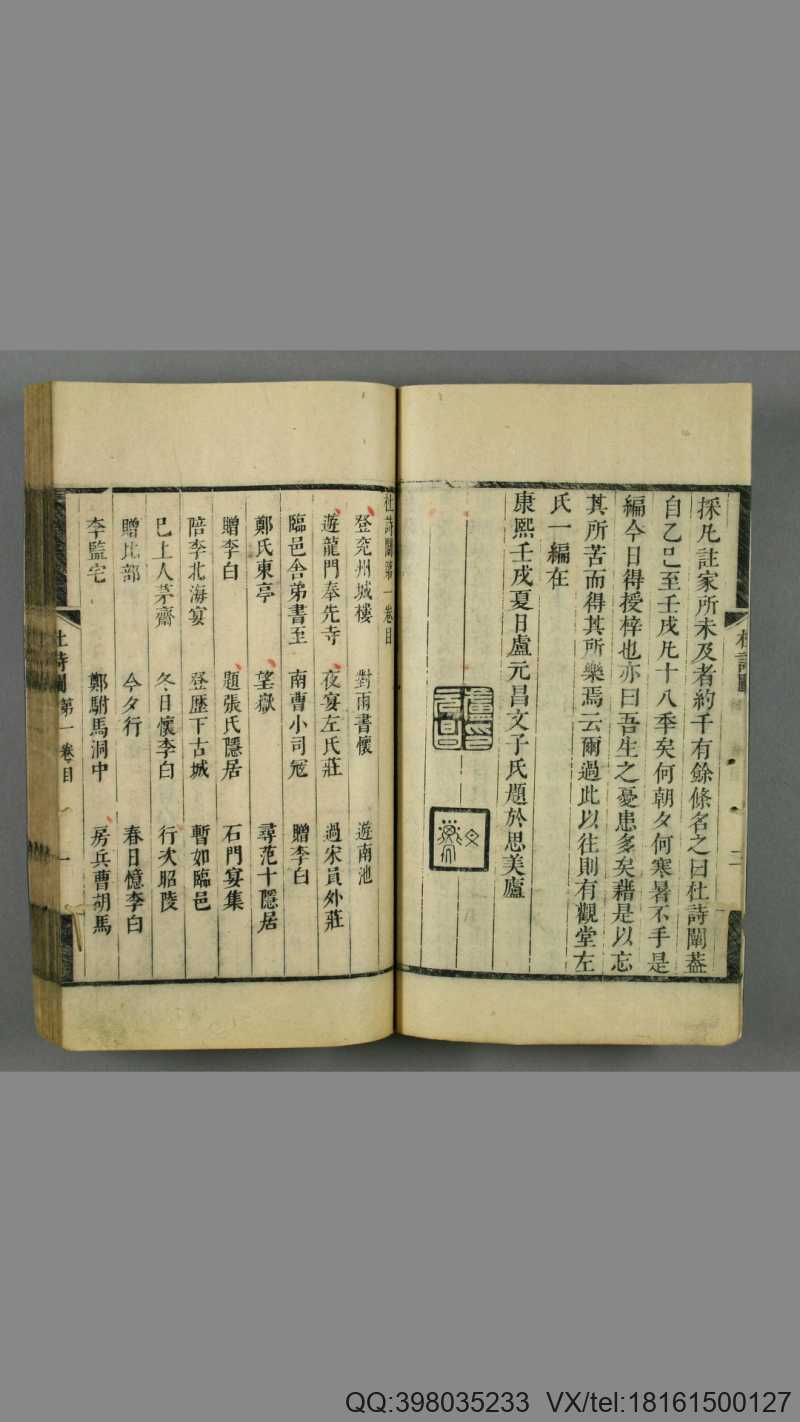 採凡註家所未及者約千有餘條名之曰杜詩闡葢
自乙巳至壬戌凡十八季矣何朝夕何寒暑不手是
編今日得授梓也亦曰吾生之憂患多矣藉是以忘
其所苦而得其所樂焉云爾過此以往則有觀堂左
氏一編在
康熙壬戌夏日盧元昌文子氏題於思美廬
杜詩闡
二
杜詩闡第一卷目
登兖州城樓 對雨書懷 遊南池
遊龍門奉先寺 夜宴左氏莊 過宋員外莊
臨邑舍弟書至 南曹小司冦 贈李白
鄭氏東亭 望嶽 尋范十隱居
贈李白 題張氏隱居 石門宴集
陪李北海宴 登歷下古城 暫如臨邑
巳上人茅齋 冬日懷李白 行次昭陵
贈比部 今夕行 春日憶李白
李監宅 鄭駙馬洞中 房兵曹胡馬
杜詩闡 第一卷目 一
QQ:398035233 VX/tel:18161500127